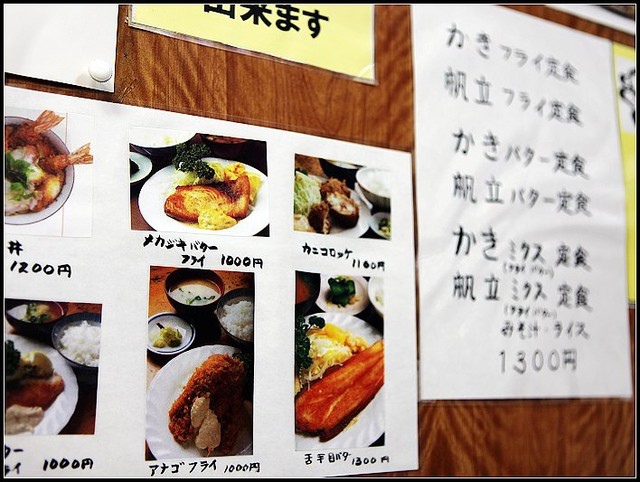 出来ます
丼
1200円
メカジキバター
フライ 1000円
カニコロッケ
1100円
1000円
アナゴフライ 1000円
1300円
かきフライ定食
帆立フライ定食
かきバター定食
帆立バター定食
かきミクス定食
帆立ミクス定食
みそ汁・ライス
1300円